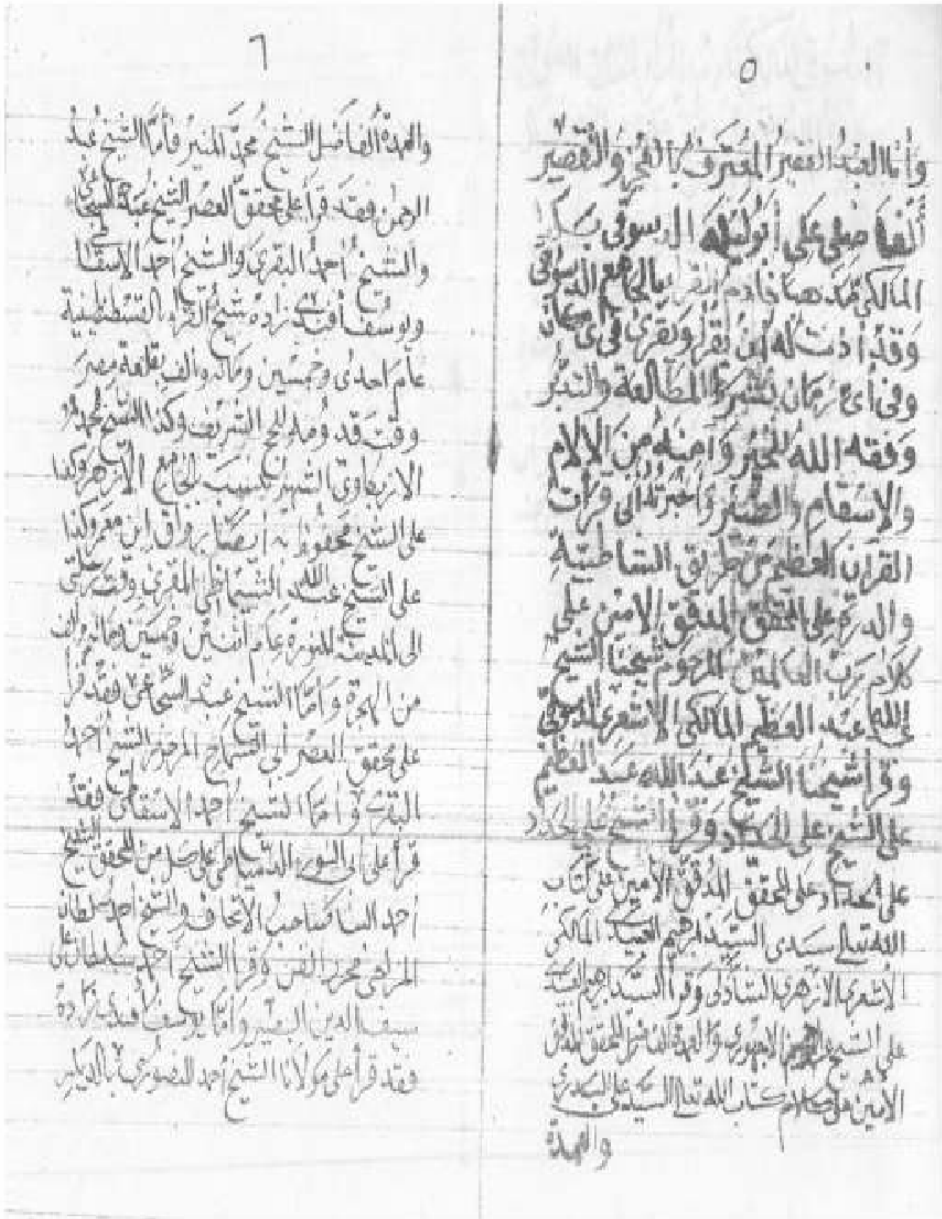 ٥
وأنا العبد الفقير المعترف بالعجز والتقصير
الفاضلي علي أبو ليله الدسوقي بلدا
المالكي مذهبا خادم القراء بالجامع الدسوقي
وقد أذنت له أن يقرأ ويقرئ في أي مكان
وفي أي زمان بشرط المطالعة والتدبر
وفقه الله للخير وآمنه من الآلام
والاسقام والضير وأخبرته أني قرأت
القرآن العظيم من طريق الشاطبية
والدرة على المحقق المدقق الامين على
كلام رب العالمين المرحوم شيخنا الشيخ
عبد العظيم المالكي الاشعري الدسوقي
وقرأ شيخنا الشيخ عبد الله عبد العظيم
على الشيخ علي الحدادي وقرأ الشيخ علي الحدادي
على المحقق المدقق الأمين على كتاب
الله تعالى سيدي السيد ابرهيم العبيدي المالكي
الأشعري الازهري الشاذلي وقرأ السيد ابرهيم العبيدي
على الشيخ الاجهوري والعمدة الفاضل المحقق المدقق
الأمين على كلام كتاب الله تعالى السيد علي البدري
والعمدة
٦
والعمدة الفاضل الشيخ محمد المنير فأما الشيخ عبد
الرحمن فقد قرأ على محقق العصر الشيخ عبده السجاعي
والشيخ أحمد البقري والشيخ أحمد الاسقاطي
ويوسف أفندي زاده شيخ القراء القسطنطينية
عام احدى وخمسين ومائه والف بقلعة مصر
وقت قدومه للحج الشريف وكذا الشيخ محمد
الازبكاوي الشهير بالجامع الأزهر وكذا
على الشيخ محفوظ به أيضا برواق ابن معمر وكذا
على الشيخ عبد الله الشماطي المقرئ وقت رحلتي
الى المدينة المنورة عام اثنين وخمسين ومائه والف
من الهجرة وأما الشيخ عبده السجاعي فقد قرأ
على محقق العصر أبي السماح المرحوم الشيخ أحمد
البقري وأما الشيخ أحمد الاسقاطي فقد
قرأ على أبي النور الدمياطي على المحقق الشيخ
أحمد البنا صاحب الاتحاف والشيخ أحمد سلطان
المزاحي محرر الفن وقرأ الشيخ أحمد سلطان على
سيف الدين البصير وأما يوسف أفندي زاده
فقد قرأ على مولانا الشيخ أحمد المنصوري بالديار